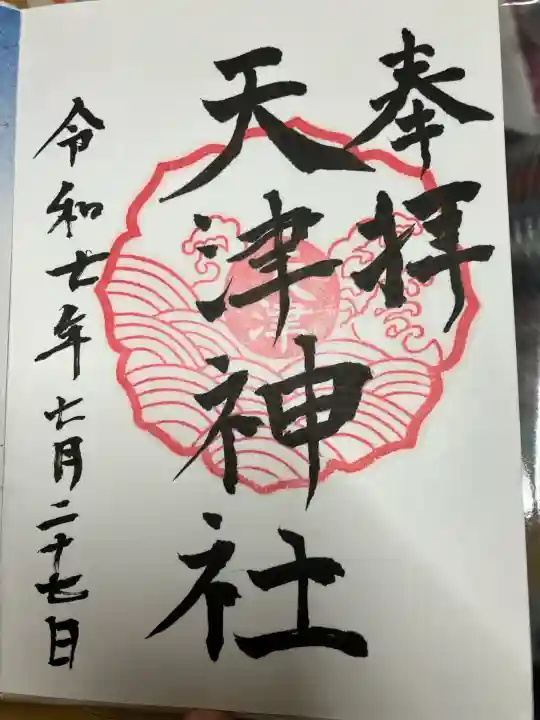 奉拝
天津神社
天津
令和七年七月二十七日